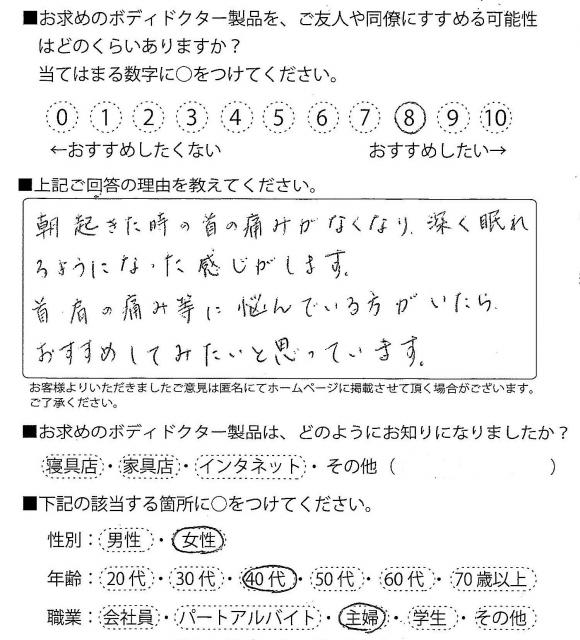 ■お求めのボディドクター製品を、ご友人や同僚にすすめる可能性
はどのくらいありますか？
当てはまる数字に○をつけてください。
0 1 2 3 4 5 6 7 8 9 10
←おすすめしたくない おすすめしたい→
■上記ご回答の理由を教えてください。
朝起きた時の首の痛みがなくなり、深く眠れ
るようになった感じがします。
首・肩の痛み等に悩んでいる方がいたら、
おすすめしてみたいと思っています。
お客様よりいただきましたご意見は匿名にてホームページに掲載させて頂く場合がございます。
ご了承ください。
■お求めのボディドクター製品は、どのようにお知りになりましたか？
寝具店・家具店・インタネット・その他（ ）
■下記の該当する箇所に○をつけてください。
性別：男性・女性
年齢：20代・30代・40代・50代・60代・70歳以上
職業：会社員・パートアルバイト・主婦・学生・その他